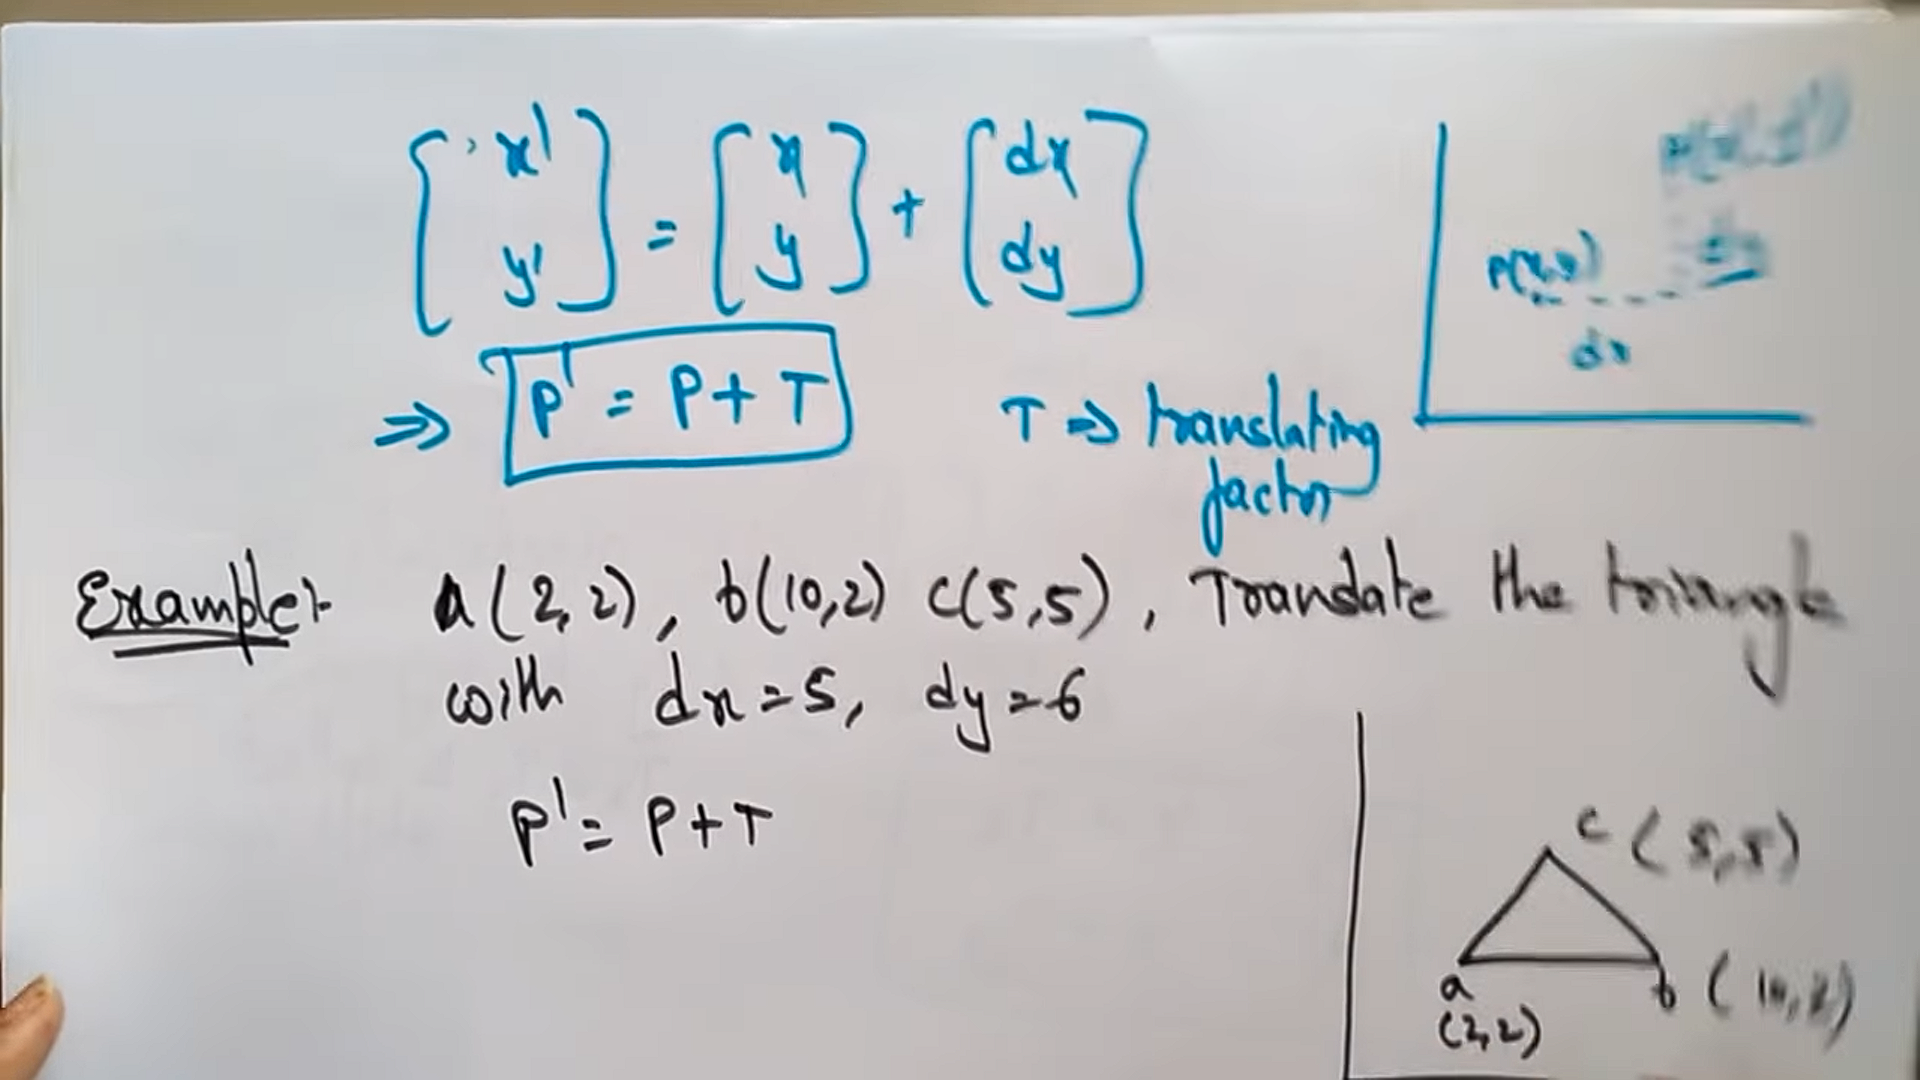 [x'] = [x] + [dx]
[y'] [y] [dy]
P(x,y)
dy
dx
⇒ P' = P + T
T ⇒ translating
factor
Example:- a(2,2), b(10,2) c(5,5), Translate the triangle
with dx=5, dy=6
P' = P+T
c(5,5)
a
(2,2)
b(10,2)